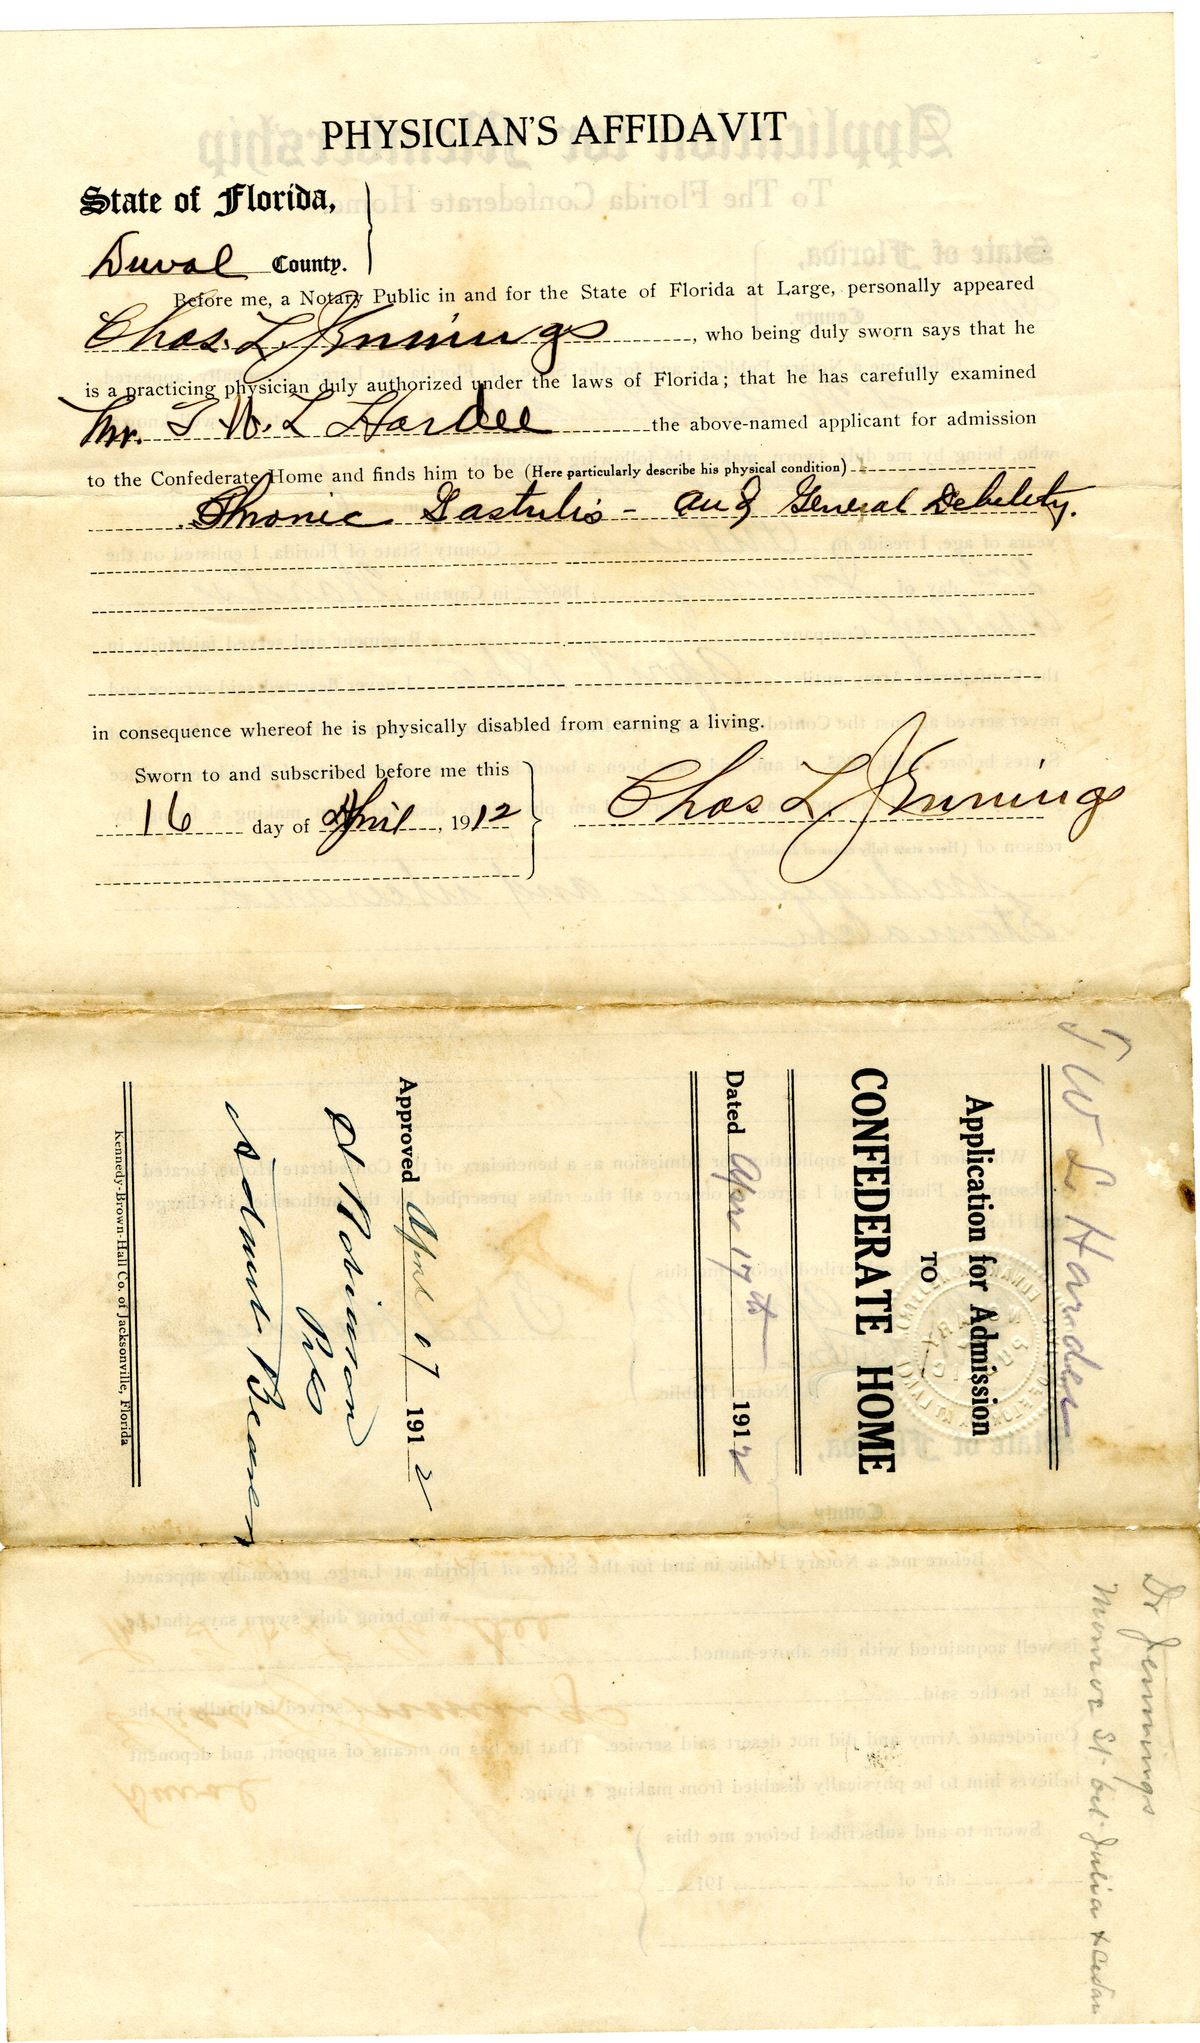 PHYSICIAN'S AFFIDAVIT
State of Florida,
Duval County.
Before me, a Notary Public in and for the State of Florida at Large, personally appeared
Chas. L. Jennings, who being duly sworn says that he
is a practicing physician duly authorized under the laws of Florida; that he has carefully examined
Mr. T W. L Hardee the above-named applicant for admission
to the Confederate Home and finds him to be (Here particularly describe his physical condition)
Chronic Gastritis - and General Debility.
in consequence whereof he is physically disabled from earning a living.
Sworn to and subscribed before me this
16 day of April, 1912
Chas L. Jennings
T W L. Hardee
Application for Admission
TO
CONFEDERATE HOME
Dated Apr 17th 1912
Approved April 17 1912
Robinson
Pres
Admit Bearer
Kennedy-Brown-Hall Co. of Jacksonville, Florida
NOTARY PUBLIC
Dr Jennings
Monroe St. bet. Julia & Cedar